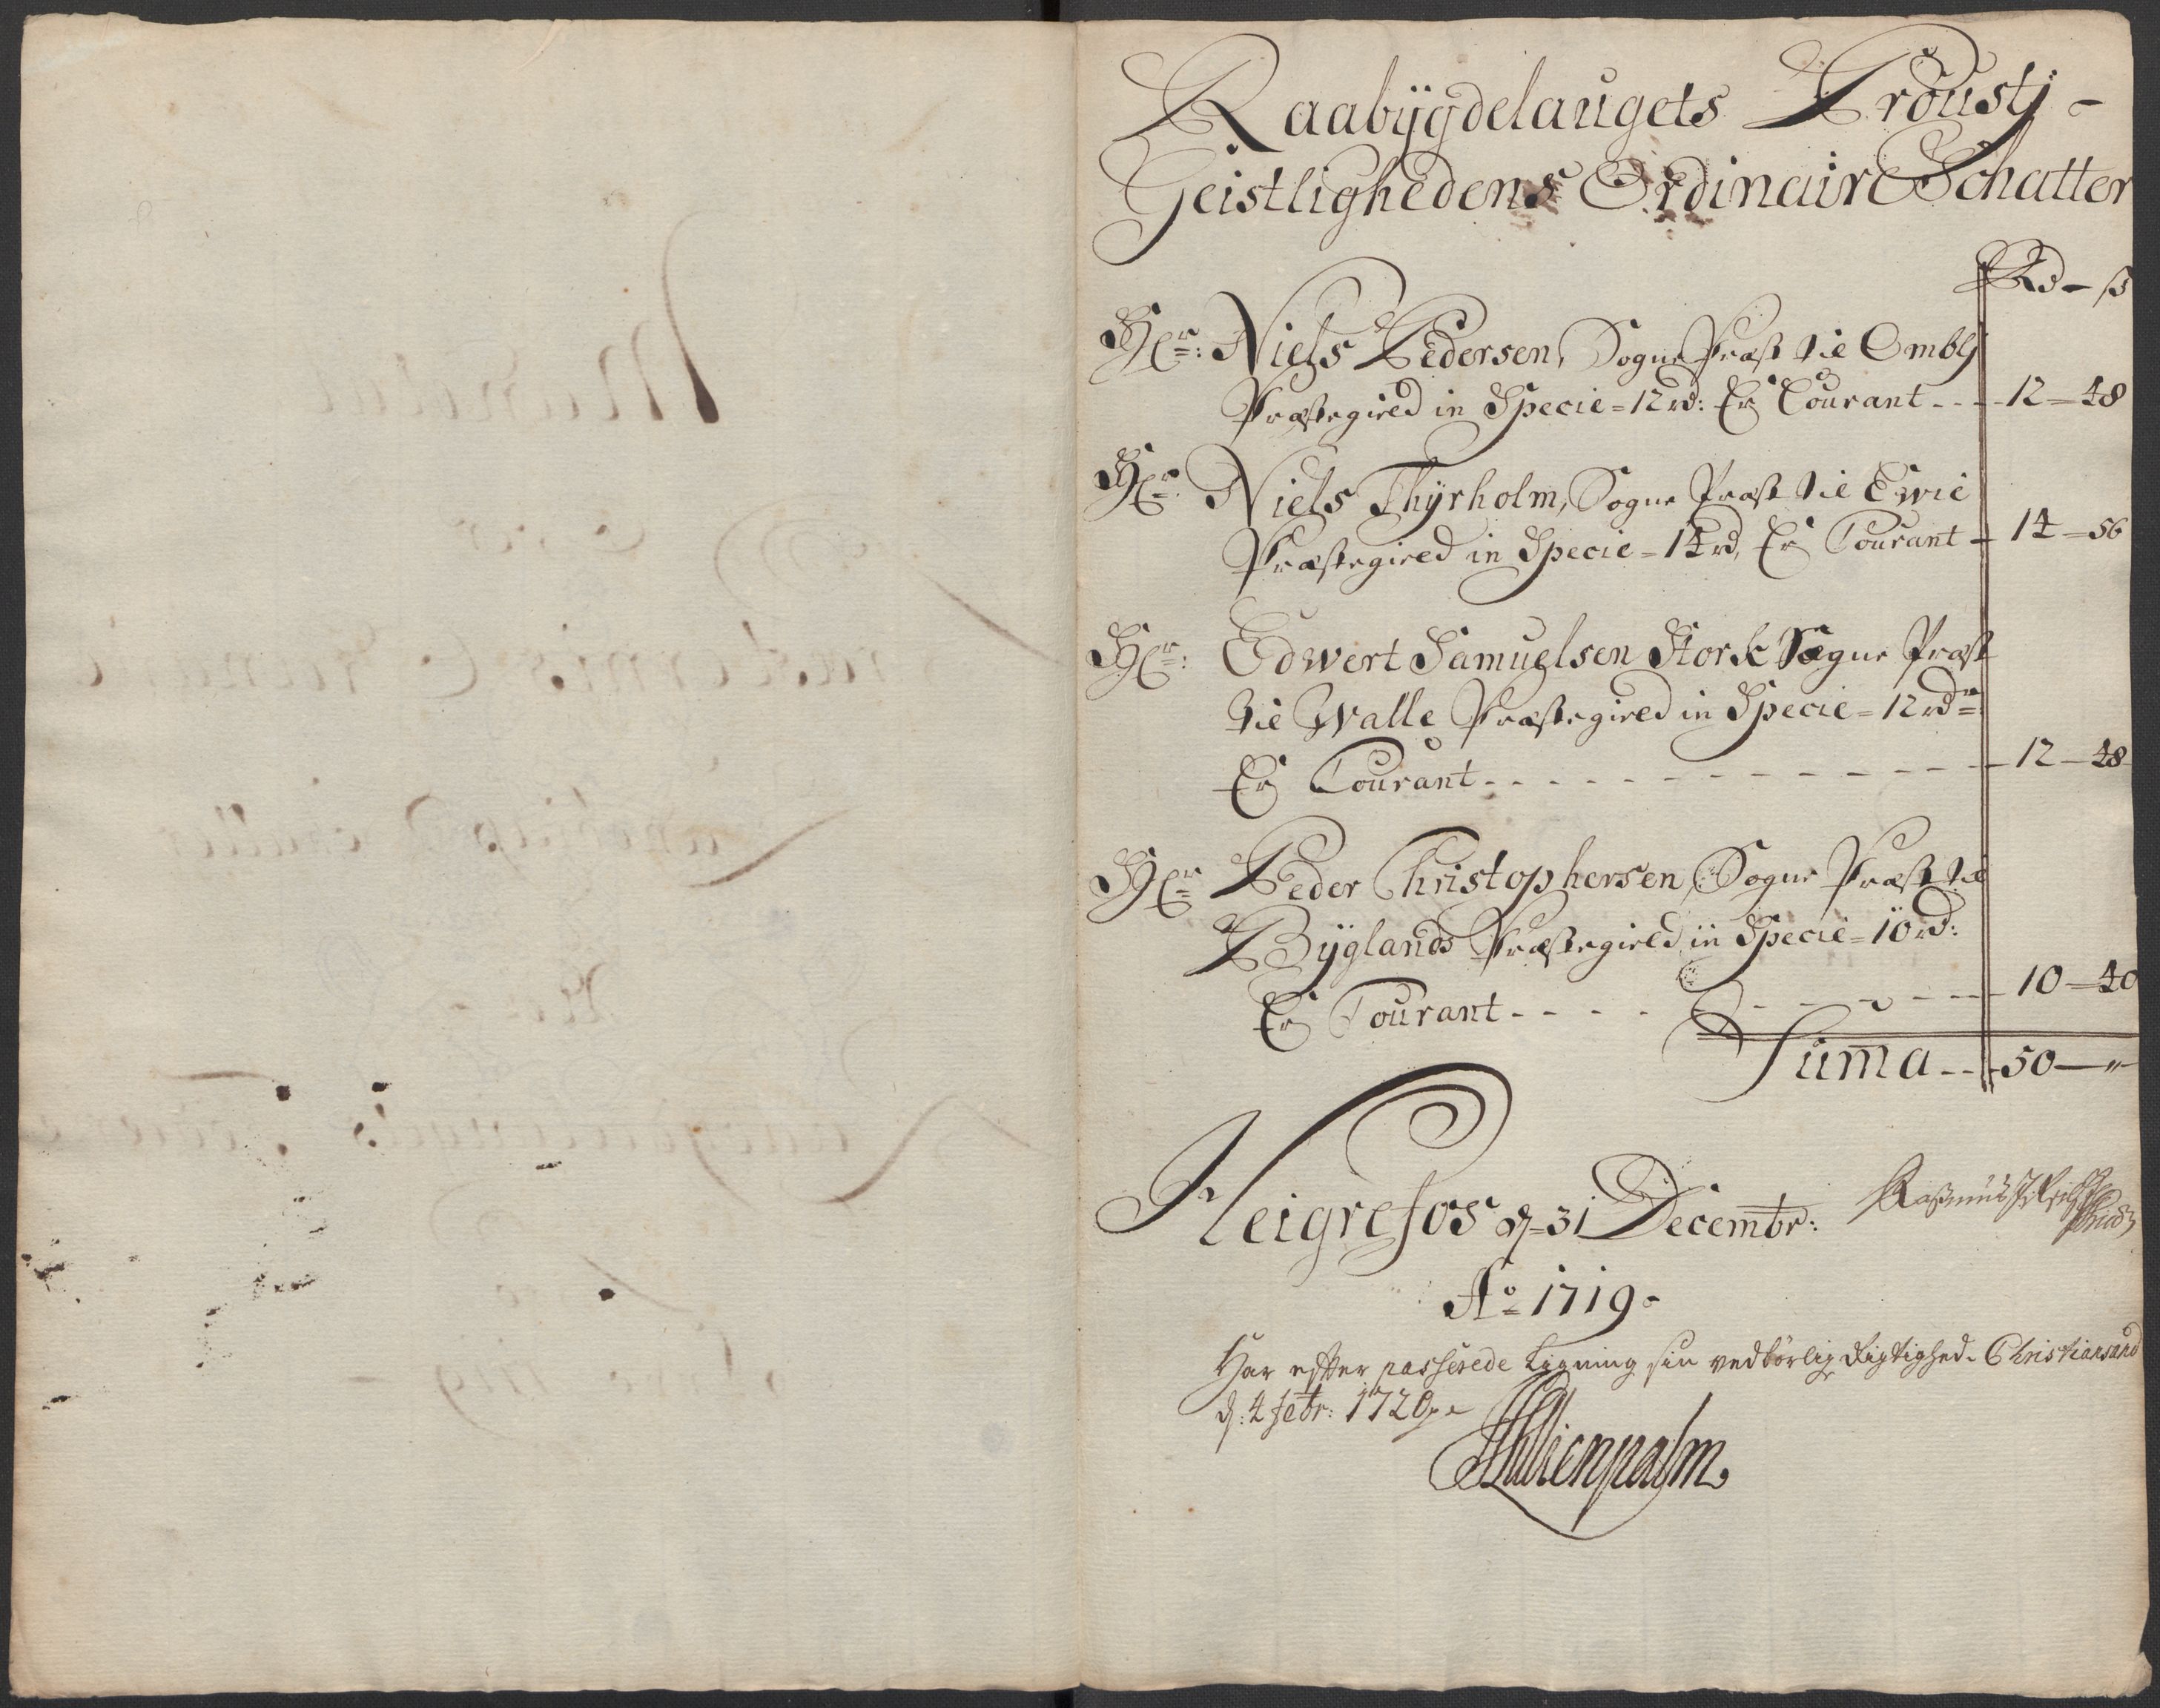 Raabÿgdelaugets Proustj -
Geistlighedens Ordinaire Schatter
Rd - ß
Hr: Niels Pedersen, Sogne Præst til Omblj
Præstegield in Specie = 12 rd: Er Courant - - - 12 - 48
Hr: Niels Thÿrholm, Sogne Præst til Ewie
Præstegield in Specie = 14 rd, Er Courant - 14 - 56
Hr: Edwert Samuelsen Stork Sogne Præst
til Walle Præstegield in Specie = 12 rdr:
Er Courant - - - - - - - - - - - 12 - 48
Hr Peder Christophersen, Sogne Præst til
Bÿglands Præstegield in Specie = 10 rd:
Er Courant - - - - - - - - - - 10 - 40
Suma - - 50 - "
Heigrefos d 31 Decembr:
Ao 1719.
Har efter passerede Ligning sin vedbørlig Rigtighed. Christiansand
d: 4 Febr: 1720